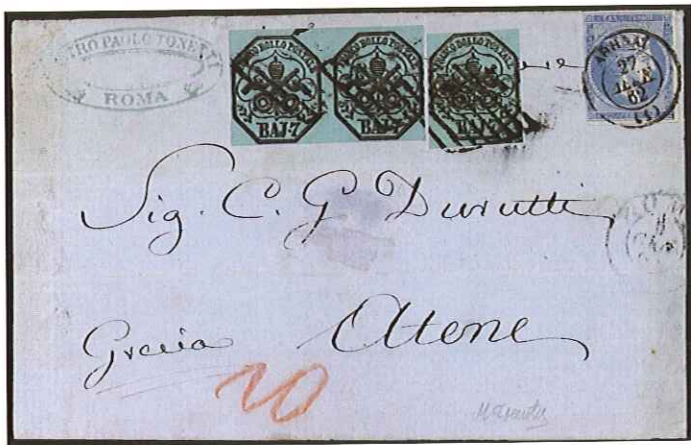 PIETRO PAOLO TONETTI
ROMA
FRANCO BOLLO POSTALE
BAJ. 7
FRANCO BOLLO POSTALE
BAJ. 7
FRANCO BOLLO POSTALE
BAJ. 7
ΑΘΗΝΑΙ
27
62
(1)
Sig. C. G. Durutti
Grecia Atene
20